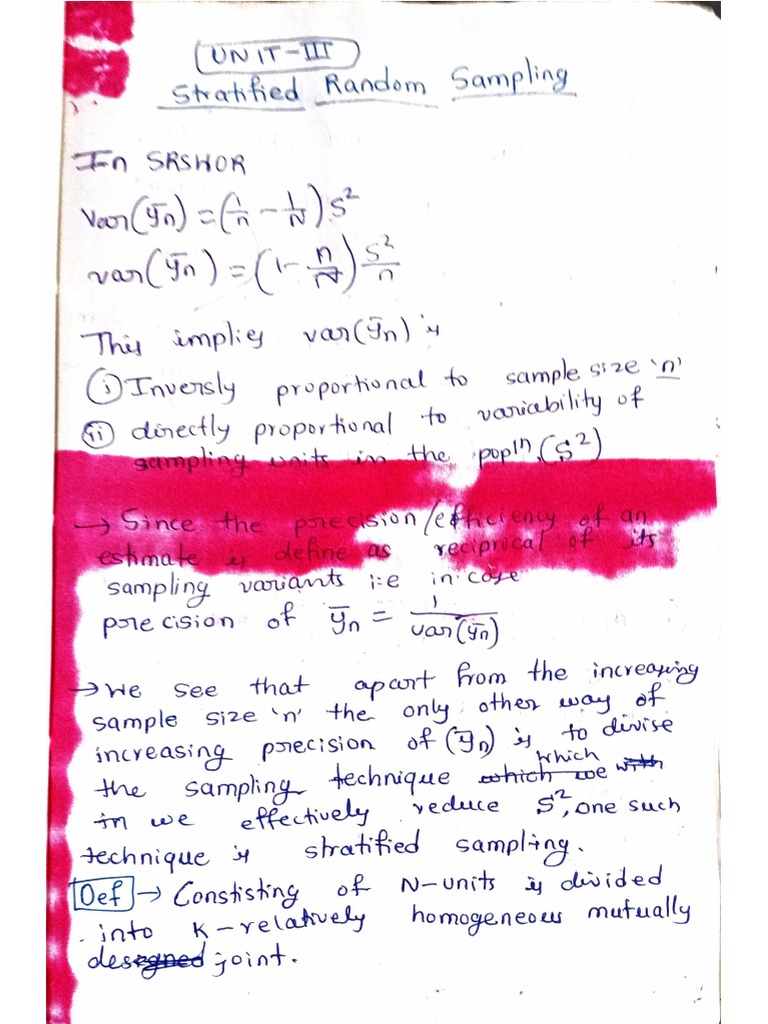 UNIT-III
Stratified Random Sampling
In SRSWOR
Var(ȳn) = (1/n - 1/N) S²
var(ȳn) = (1 - n/N) S²/n
This implies var(ȳn) is
(i) Inversly proportional to sample size 'n'
(ii) directly proportional to variability of
sampling units in the popln (S²)
→ Since the precision/efficiency of an
estimate is define as reciprocal of its
sampling variants i:e in case
precision of ȳn = 1/var(ȳn)
→ We see that apart from the increasing
sample size 'n' the only other way of
increasing precision of (ȳn) is to divise
the sampling technique which we with which
in we effectively reduce S², one such
technique is stratified sampling.
Def → Constisting of N-units is divided
into K-relatively homogeneous mutually
designed joint.